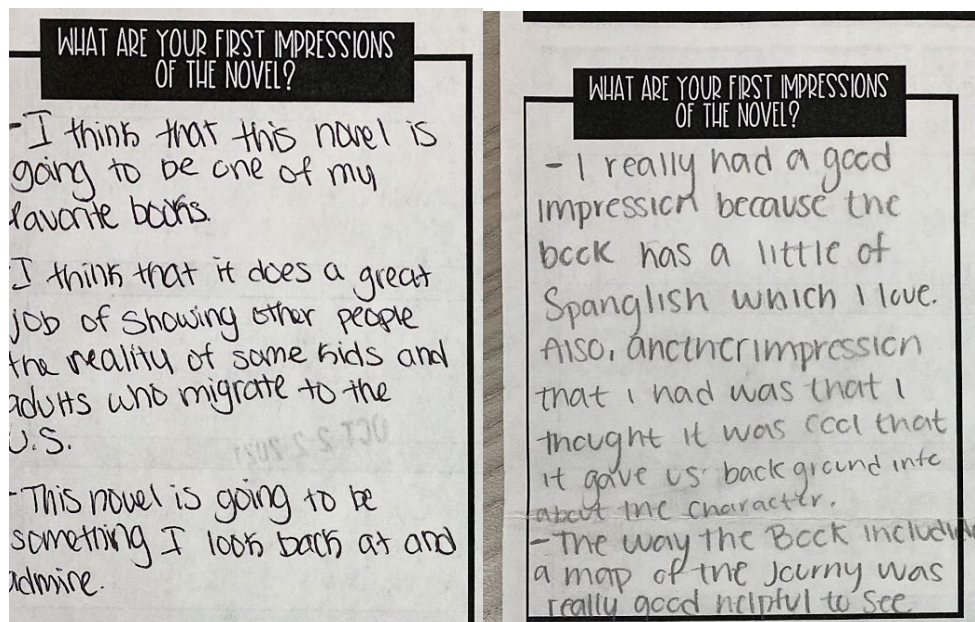 WHAT ARE YOUR FIRST IMPRESSIONS
OF THE NOVEL?
-I think that this novel is
going to be one of my
favorite books.
I think that it does a great
job of showing other people
the reality of some kids and
adults who migrate to the
U.S.
OCT 2 2 2021
-This novel is going to be
something I look back at and
admire.
WHAT ARE YOUR FIRST IMPRESSIONS
OF THE NOVEL?
- I really had a good
impression because the
book has a little of
Spanglish which I love.
Also, another impression
that I had was that I
thought it was cool that
it gave us background info
about the character.
-The way the Book includin
a map of the Journy was
really good helpful to see